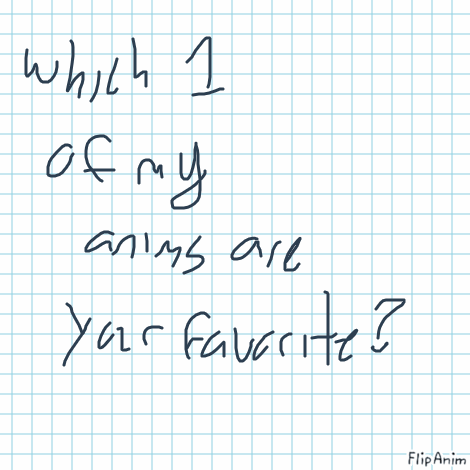 which 1
of my
anims are
your favorite?
FlipAnim